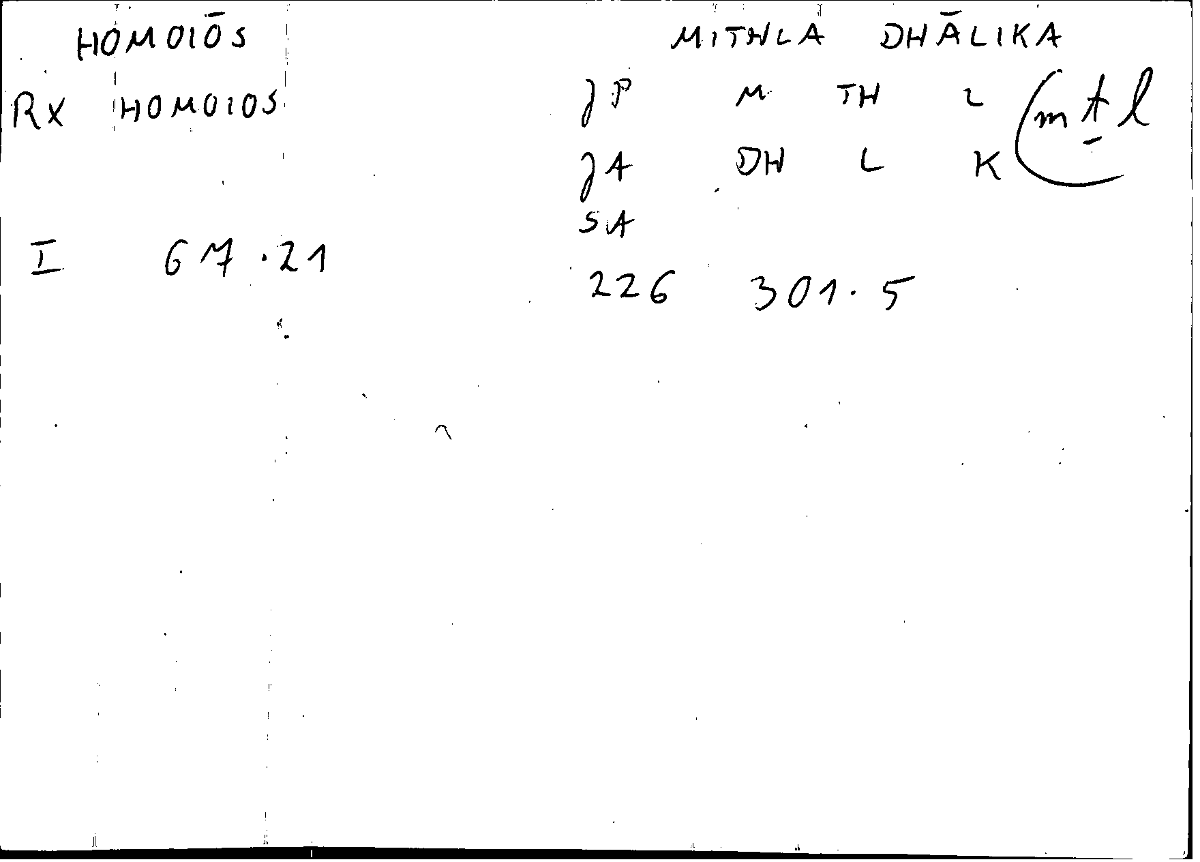 HOMOIŌS MITHLA DHĀLIKA
RX HOMOIOS JP M TH L (mṯl
JA DH L K
SA
I 67.21 226 301.5